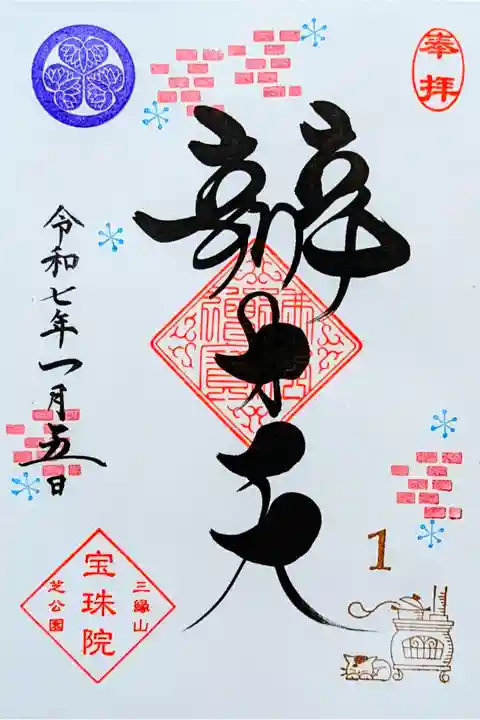 奉拝
辨才天
令和七年一月五日
三縁山
宝珠院
芝公園
1